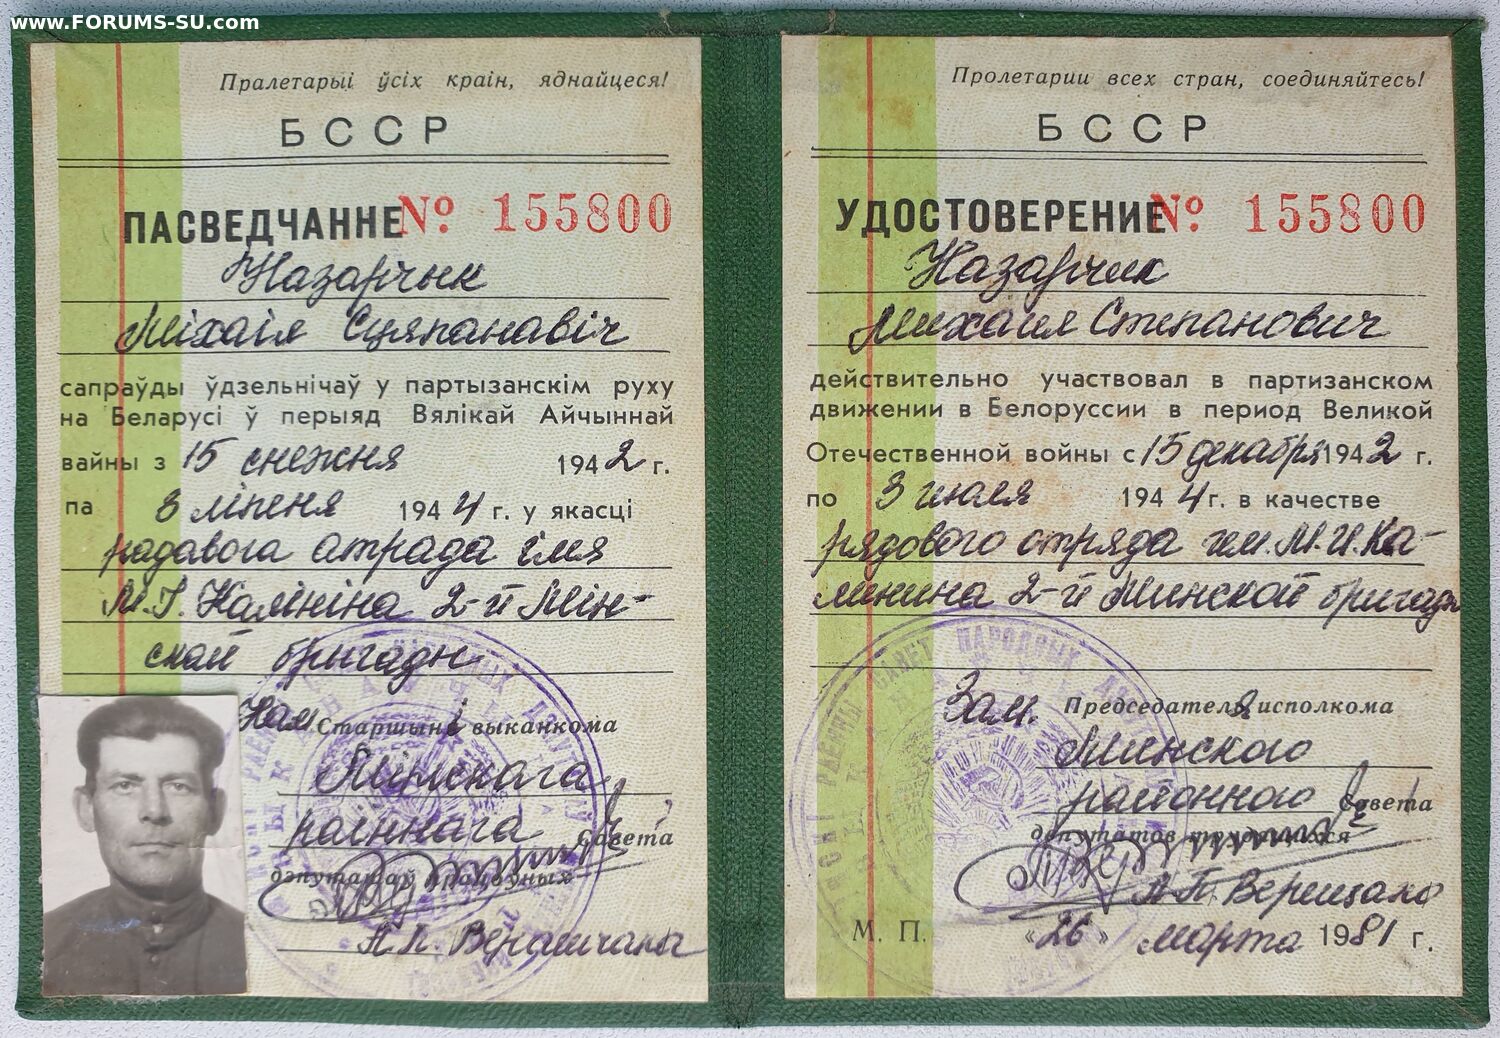 www.FORUMS-SU.com
Пралетарыі ўсіх краін, яднайцеся!
БССР
ПАСВЕДЧАННЕ № 155800
Назарчык
Міхаіл Сцяпанавіч
сапраўды ўдзельнічаў у партызанскім руху
на Беларусі ў перыяд Вялікай Айчыннай
вайны з 15 снежня 1942 г.
па 3 ліпеня 1944 г. у якасці
радавога атрада імя
М.І. Калініна 2-й Мін-
скай брыгады
Нам. Старшыні выканкома
Мінскага
раённага Савета
дэпутатаў працоўных
А.П. Верашчака
Пролетарии всех стран, соединяйтесь!
БССР
УДОСТОВЕРЕНИЕ № 155800
Назарчик
Михаил Степанович
действительно участвовал в партизанском
движении в Белоруссии в период Великой
Отечественной войны с 15 декабря 1942 г.
по 3 июля 1944 г. в качестве
рядового отряда им. М.И. Ка-
линина 2-й Минской бригады
Зам. Председателя исполкома
Минского
районного Совета
депутатов трудящихся
А.П. Верещако
М. П. «26» марта 1981 г.